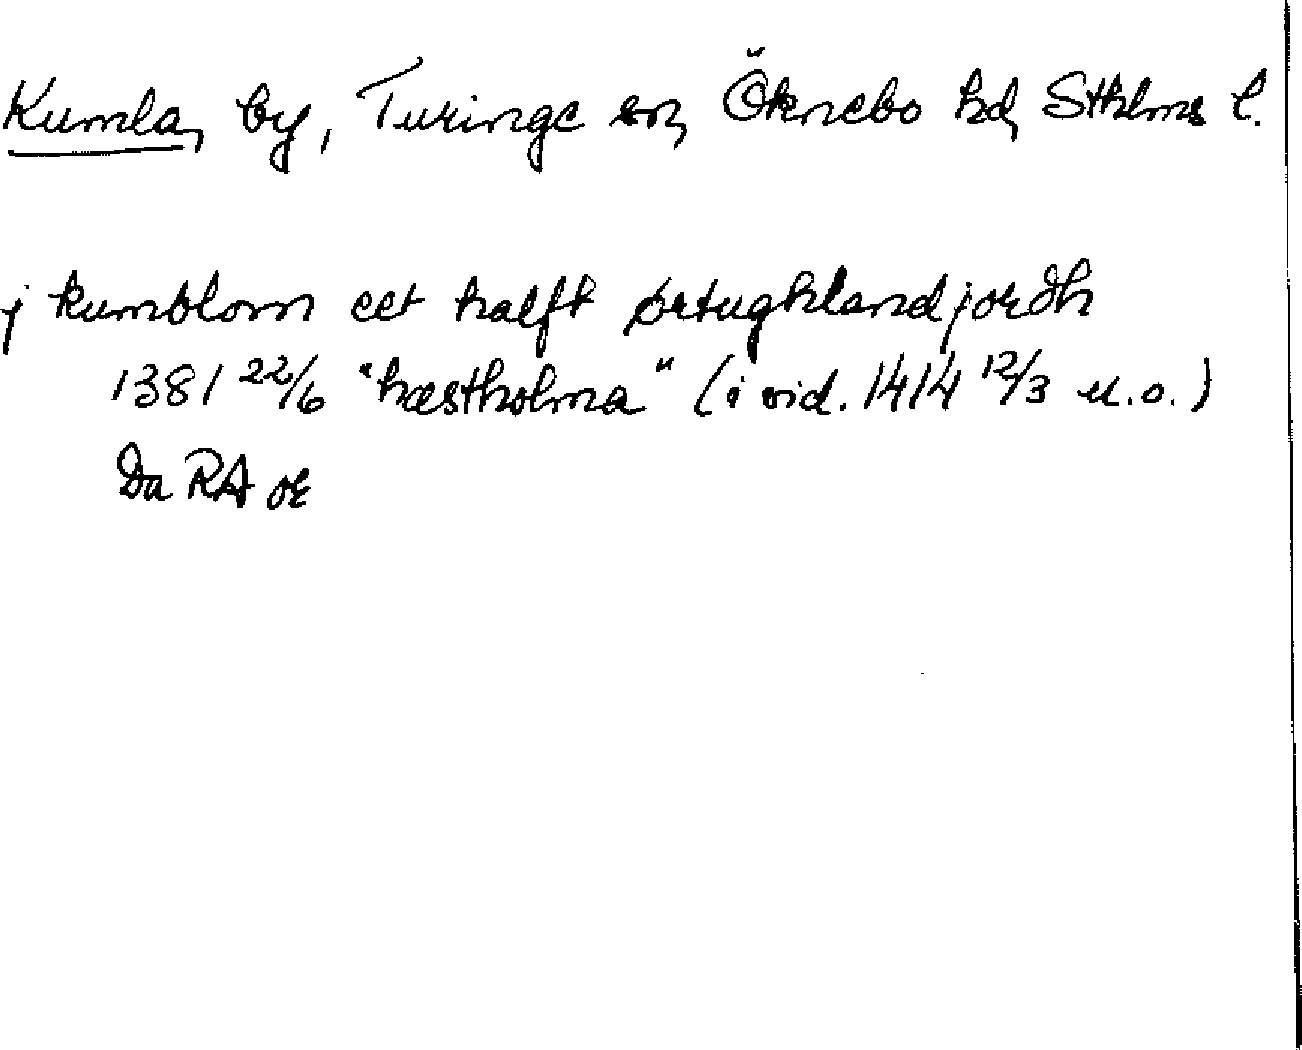 Kumla, by, Turinge sn, Öknebo hd, Sthlms l.
j kumblom eet halft ørtughland jordh
1381 22/6 "hæstholma" (i vid. 1414 12/3 u.o.)
Da RA or